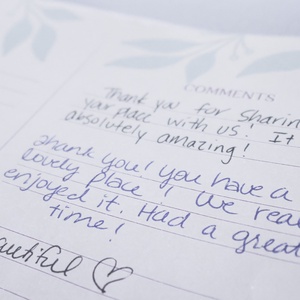 COMMENTS
Thank you for sharin
your place with us! It
absolutely amazing!
Thank you! You have a
lovely place! We rea
enjoyed it. Had a great
time!
autiful ♡